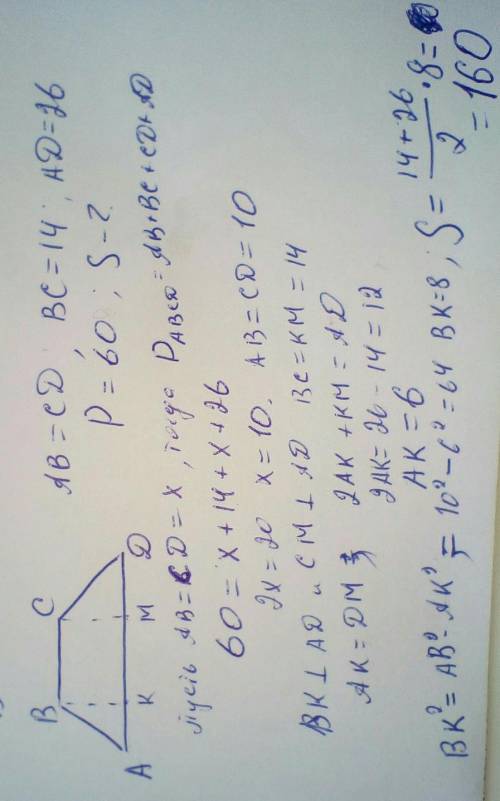 B C
A K M D
AB = CD BC = 14; AD = 26
P = 60; S - ?
Пусть AB = CD = x, тогда P ABCD = AB + BC + CD + AD
60 = x + 14 + x + 26
2x = 20 x = 10, AB = CD = 10
BK ⊥ AD и CM ⊥ AD BC = KM = 14
AK = DM 2AK + KM = AD
2AK = 26 - 14 = 12
AK = 6
BK² = AB² - AK² = 10² - 6² = 64 BK = 8; S = \frac{14 + 26}{2} · 8 =
= 160